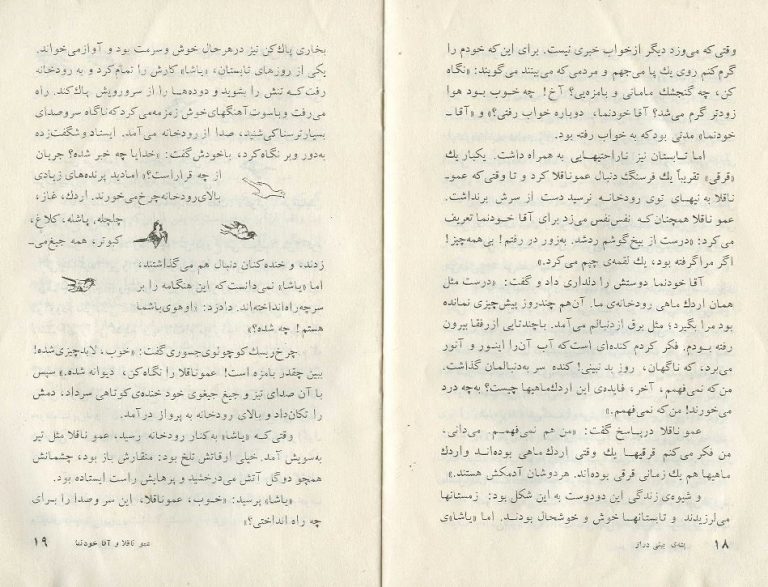 وقتی‌که می‌وزد دیگر ازخواب خبری نیست. برای این‌که خودم را
گرم‌کنم روی یك پا می‌جهم و مردمی‌که می‌بینند می‌گویند: «نگاه
کن، چه گنجشك مامانی و بامزه‌یی؟ آخ! چه خوب بود هوا
زودتر گرم می‌شد؟ آقا خودنما، دوباره خواب رفتی؟» و «آقا -
خودنما» مدتی بودکه به خواب رفته بود.
اما تابستان نیز ناراحتیهایی به همراه داشت. یکبار یك
«قرقی» تقریباً یك فرسنگ دنبال عموناقلا کرد و تا وقتی‌که عمو-
ناقلا به نیهای توی رودخانه نرسید دست از سرش برنداشت.
عمو ناقلا همچنان‌که نفس‌نفس می‌زد برای آقا خودنما تعریف
می‌کرد: «درست از بیخ گوشم ردشد. به‌زور در رفتم! بی‌همه‌چیز!
اگر مراگرفته بود، یك لقمه‌ی چپم می‌کرد.»
آقا خودنما دوستش را دلداری داد و گفت: «درست مثل
همان اردك ماهی رودخانه‌ی ما. آن‌هم چندروز پیش‌چیزی نمانده
بود مرا بگیرد؛ مثل برق ازدنبالم می‌آمد. باچندتایی ازرفقا بیرون
رفته بودم. فکر کردم کنده‌ای است‌که آب آن‌را اینور و آنور
می‌برد، که ناگهان، روز بد نبینی! کنده سر به‌دنبالمان گذاشت.
من‌که نمی‌فهمم، آخر، فایده‌ی این اردك‌ماهیها چیست؟ به‌چه درد
می‌خورند! من‌که نمی‌فهمم.»
عمو ناقلا درپاسخ گفت: «من هم نمی‌فهمم. می‌دانی.
من فکر می‌کنم قرقیها یك وقتی اردك ماهی بوده‌اند واردك
ماهیها هم یك زمانی قرقی بوده‌اند. هردوشان آدمکش هستند.»
و شیوه‌ی زندگی این دودوست به این شکل بود: زمستانها
می‌لرزیدند و تابستانها خوش و خوشحال بودند. اما «یاشا»ی
۱۸ بینی دراز
بخاری پاك‌کن نیز درهرحال خوش وسرمت بود و آوازمی‌خواند.
یکی از روزهای تابستان، «یاشا» کارش را تمام‌کرد و به رودخانه
رفت‌که تنش را بشوید و دوده‌ها را از سرورویش پاك‌کند. راه
می‌رفت و باسوت آهنگهای‌خوش زمزمه‌می‌کردکه‌ناگاه سروصدای
بسیارترسناکی‌شنید، صدا از رودخانه می‌آمد. ایستاد وشگفت‌زده
به‌دور وبر نگاه‌کرد، باخودش‌گفت: «خدایا چه خبر شده؟ جریان
از چه قراراست؟» امادید پرنده‌های زیادی
بالای‌رودخانه‌چرخ‌می‌خورند. اردك، غاز،
چلچله. پاشله، کلاغ،
کبوتر، همه جیغ‌می-
زدند، و خنده‌کنان دنبال هم می‌گذاشتند،
اما «یاشا» نمی‌دانست‌که این هنگامه را بر
سرچه‌راه انداخته‌اند. دادزد: «اوهوی‌باشما
هستم! چه شده؟»
چرخ‌ریسك کوچولوی‌جسوری‌گفت: «خوب، لابدچیزی‌شده!
ببین چقدر بامزه است! عموناقلا را نگاه‌کن، دیوانه شده.» سپس
با آن صدای تیز و جیغ جیغوی خود خنده‌ی‌کوتاهی سرداد، دمش
را تکان‌داد و بالای رودخانه به پرواز درآمد.
وقتی‌که «یاشا» به‌کنار رودخانه رسید، عمو ناقلا مثل تیر
به‌سویش آمد. خیلی اوقاتش تلخ بود: منقارش باز بود، چشمانش
همچو دوگل آتش می‌درخشید و پرهایش راست ایستاده بود.
«یاشا» پرسید: «خوب، عموناقلا، این سر وصدا را برای
چه راه انداختی؟»
عمو ناقلا و آقا خودنما ۱۹